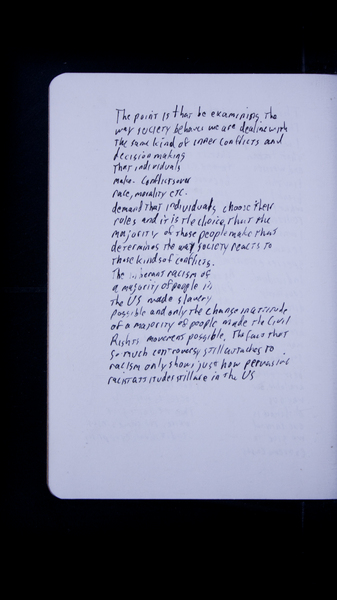 The point is that be examining the
way society behaves we are dealing with
the same kind of inner conflicts and
decision making
that individuals
make. Conflicts over
race, morality etc.
demand that individuals choose their
roles and it is the choice that the
majority of those people make that
determines the way society reacts to
those kinds of conflicts.
The inherent racism of
a majority of people in
the US made slavery
possible and only the change in attitude
of a majority of people made the Civil
Rights movement possible. The fact that
so much controversy still attaches to
racism only shows just how pervasive
racist attitudes still are in the US